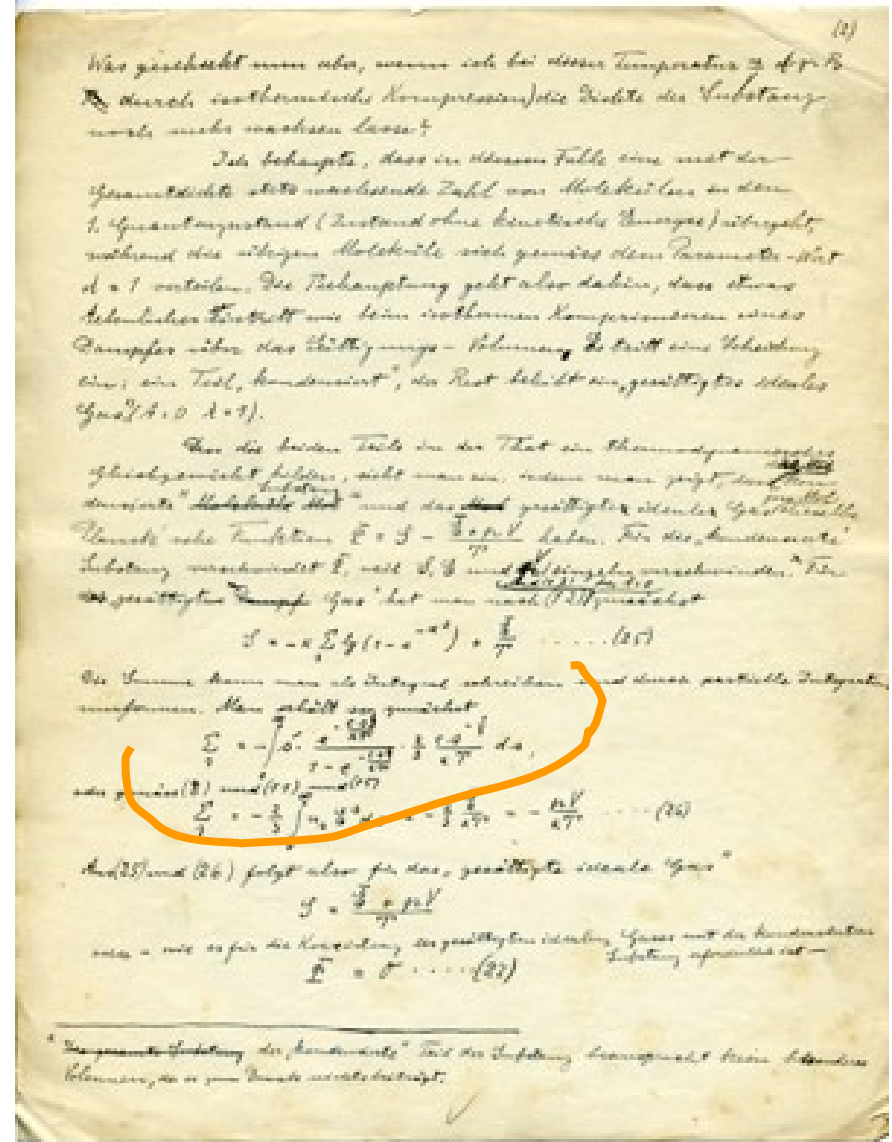 (2)
Was geschieht nun aber, wenn ich bei dieser Temperatur
durch isothermische Kompression) die Dichte der Substanz
noch mehr wachsen lasse?
Ich behaupte, dass in diesem Falle eine mit der
Gesamtdichte stets wachsende Zahl von Molekülen in den
1. Quantenzustand (Zustand ohne kinetische Energie) übergeht,
während die übrigen Moleküle sich gemäss dem Parameter-Wert
λ = 1 verteilen. Die Behauptung geht also dahin, dass etwas
Aehnliches Eintritt wie beim isothermen Komprimieren eines
Dampfes über das Sättigungs-Volumen. Es tritt eine Scheidung
ein; ein Teil „kondensiert", der Rest bleibt ein „gesättigtes ideales
Gas" (A = 0 λ = 1).
Dass die beiden Teile in der That ein thermodynamisches
Gleichgewicht bilden, sieht man ein, indem man zeigt, dass
densierte" Substanz und das gesättigte ideale Gas dieselbe
Planck'sche Funktion Φ = S − (Ē + pV)/T haben. Für die „kondensierte"
Substanz verschwindet Φ, weil S, Ē und V einzeln verschwinden.* Für
gesättigte Gas" hat man nach zunächst
S = −κ Σ lg (1 − e^−α^s) + Ē/T ......(25)
Die Summe kann man als Integral schreiben und durch partielle Integration
umformen. Man erhält so zunächst
Σ = −∫ s ds,
oder gemäss (8) und (11) und (15)
Σ = −2/3 ∫ = − pV/κT ....(26)
Aus (25) und (26) folgt also für das „gesättigte ideale Gas"
S = (Ē + pV)/T
oder – wie es für die Koexistenz des gesättigten idealen Gases mit der kondensierten
Substanz erforderlich ist —
Φ = 0 ....(27)
* der „kondensierte" Teil der Substanz beansprucht kein besonderes
Volumen, da er zum Drucke nichts beiträgt.